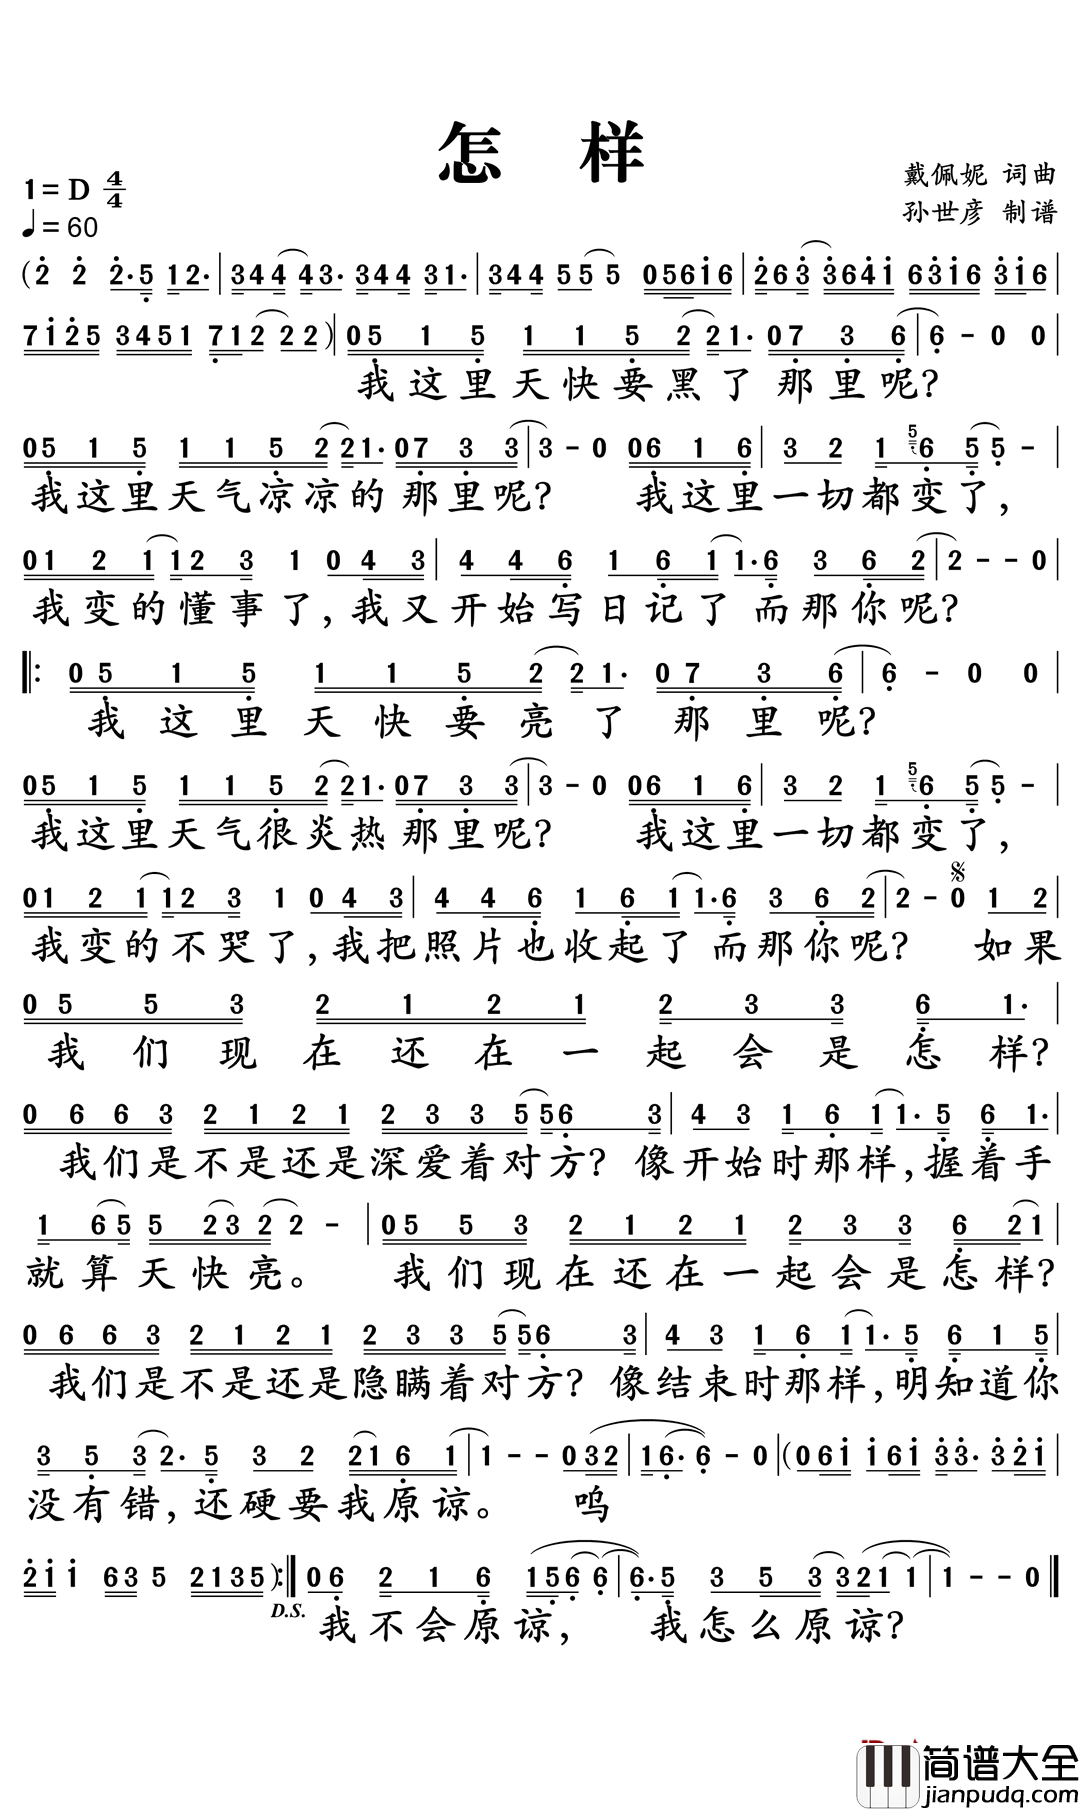 怎 样
1=D 4/4
戴佩妮 词曲
♩=60
孙世彦 制谱
(2 2 2·5 12· | 344 43· 344 31· | 344 55 5 05616 | 263 3641 6316 316 |
7125 3451 712 22 ) | 05 1 5 1 1 5 2 21· 07 3 6 | 6 - 0 0 |
我这里天快要黑了 那里呢?
05 1 5 1 1 5 2 21· 07 3 3 | 3 - 0 06 1 6 | 3 2 1 5 6 5 5 - |
我这里天气凉凉的 那里呢? 我这里一切都变了,
01 2 1 12 3 1 0 4 3 | 4 4 6 1 6 1 1·6 3 6 2 | 2 - - 0 |
我变的懂事了,我又开始写日记了 而那你呢?
‖: 0 5 1 5 1 1 5 2 2 1· 0 7 3 6 | 6 - 0 0 |
我这里天快要亮了 那里呢?
05 1 5 1 1 5 2 21· 07 3 3 | 3 - 0 06 1 6 | 3 2 1 5 6 5 5 - |
我这里天气很炎热那里呢? 我这里一切都变了,
01 2 1 12 3 1 0 4 3 | 4 4 6 1 6 1 1·6 3 6 2 | 2 - 0 1 2 |
我变的不哭了,我把照片也收起了 而那你呢? 如果
0 5 5 3 2 1 2 1 2 3 3 6 1· |
我们现在还在一起会是怎样?
0 6 6 3 2 1 2 1 2 3 3 5 56 3 | 4 3 1 6 1 1·5 6 1· |
我们是不是还是深爱着对方? 像开始时那样,握着手
1 6 5 5 2 3 2 2 - | 05 5 3 2 1 2 1 2 3 3 6 21 |
就算天快亮。 我们现在还在一起会是怎样?
0 6 6 3 2 1 2 1 2 3 3 5 56 3 | 4 3 1 6 1 1·5 6 1 5 |
我们是不是还是隐瞒着对方? 像结束时那样,明知道你
3 5 3 2· 5 3 2 21 6 1 | 1 - - 032 | 16· 6 - 0 | (061 161 33· 321 |
没有错,还硬要我原谅。 呜
21 1 63 5 2135 :‖ 06 2 1 6 156 6 | 6·5 3 5 3 321 1 | 1 - - 0 ‖
D.S.
我不会原谅, 我怎么原谅?
简谱大全
jianpudq.com